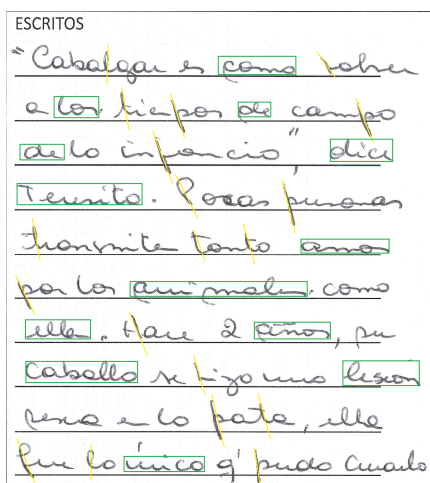 ESCRITOS
"Cabalgar es como volver
a los tiempos de campo
de la infancia", dice
Teresita. Pocas personas
transmiten tanto amor
por los animales como
ella. Hace 2 años, su
caballo se hizo una lesión
seria en la pata, ella
fue la única q' pudo curarlo